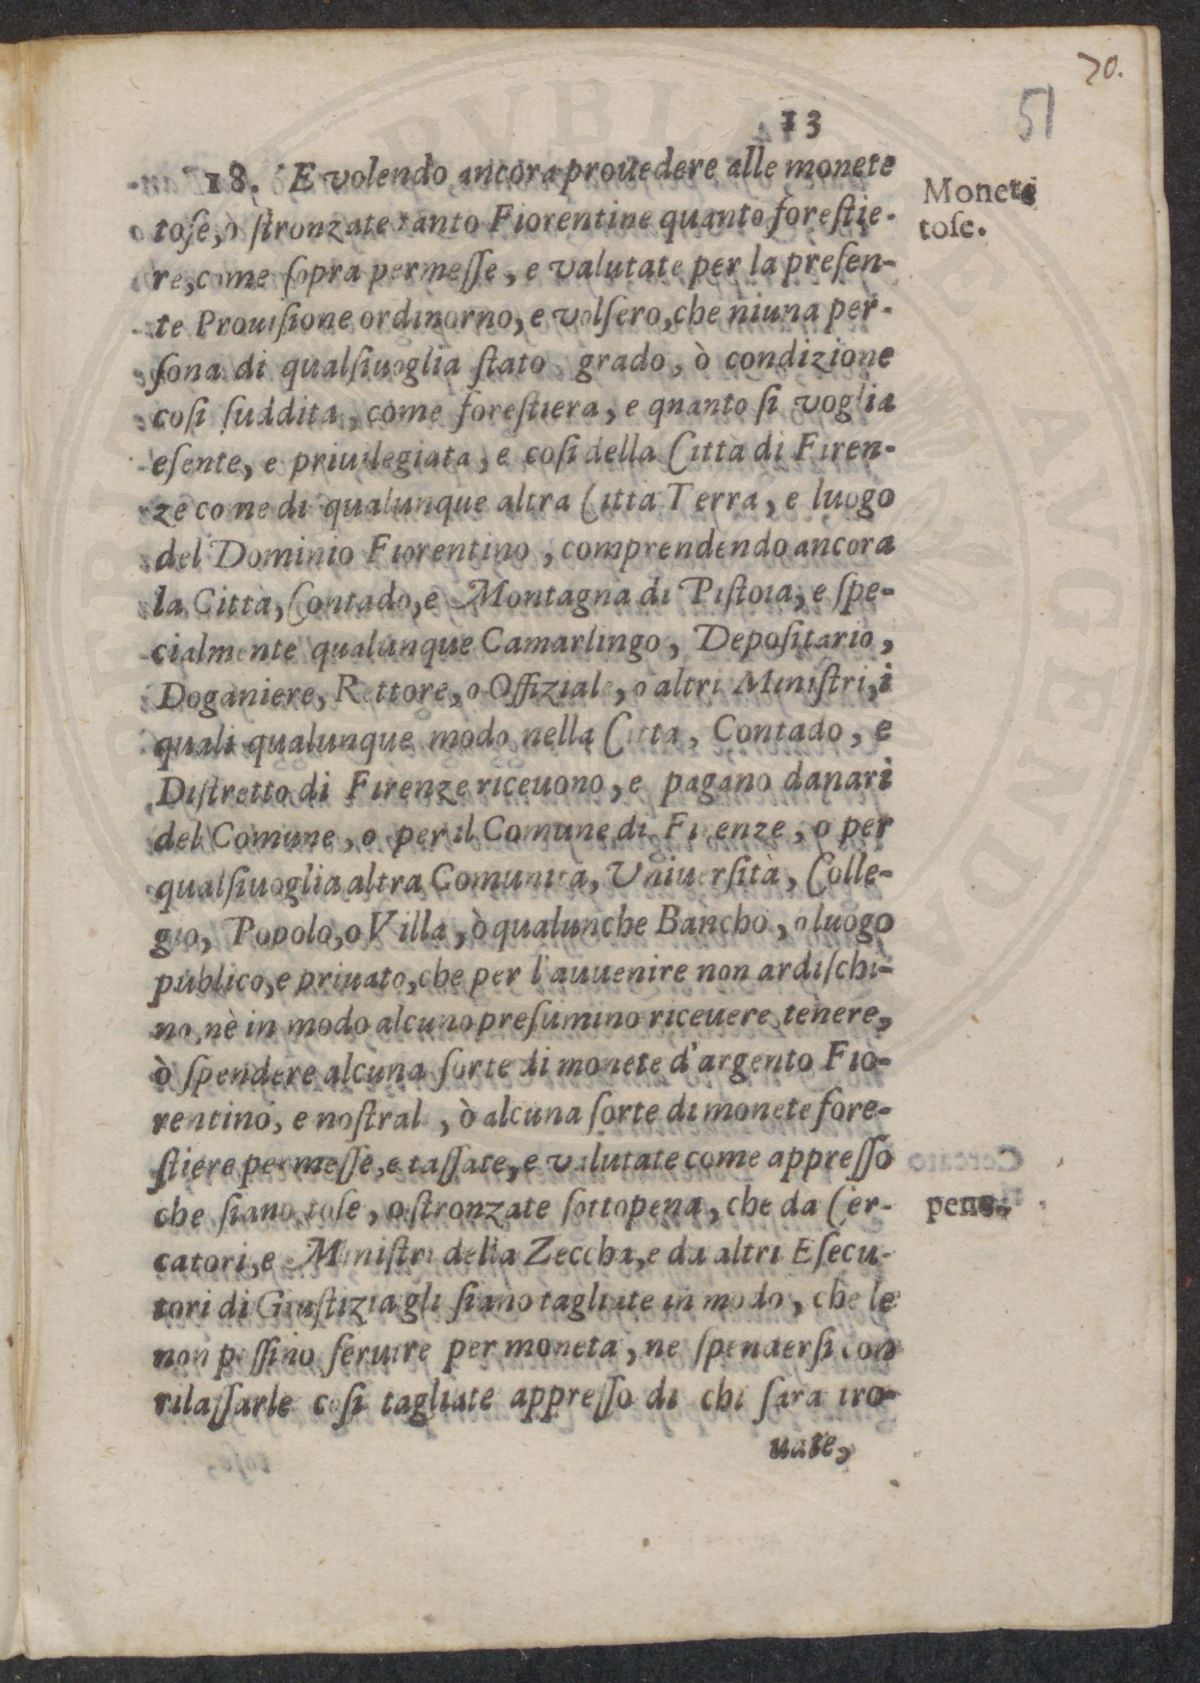 70.
51
13
18. E volendo ancora prouedere alle monete
tose, ò stronzate tanto Fiorentine quanto forestie-
re, come sopra permesse, e valutate per la presen-
te Prouisione ordinorno, e volsero, che niuna per-
sona di qualsiuoglia stato, grado, ò condizione
cosi suddita, come forestiera, e quanto si voglia
esente, e priuilegiata, e cosi della Città di Firen-
ze come di qualunque altra Citta Terra, e luogo
del Dominio Fiorentino, comprendendo ancora
la Citta, Contado, e Montagna di Pistoia, e spe-
cialmente qualunque Camarlingo, Depositario,
Doganiere, Rettore, o Offiziale, o altri Ministri, i
quali qualunque modo nella Citta, Contado, e
Distretto di Firenze riceuono, e pagano danari
del Comune, o per il Comune di Firenze, o per
qualsiuoglia altra Comunita, Vniuersità, Colle-
gio, Popolo, o Villa, ò qualunche Bancho, o luogo
publico, e priuato, che per l'auuenire non ardischi-
no, nè in modo alcuno presumino riceuere, tenere,
ò spendere alcuna sorte di monete d'argento Fio-
rentino, e nostral, ò alcuna sorte di monete fore-
stiere permesse, e tassate, e valutate come appresso
che siano tose, o stronzate sotto pena, che da Cer-
catori, e Ministri della Zeccha, e da altri Esecu-
tori di Giustizia gli siano tagliate in modo, che le
non possino seruire per moneta, ne spendersi con
rilassarle cosi tagliate appresso di chi sara tro-
uate,
Monete
tose.
pene.